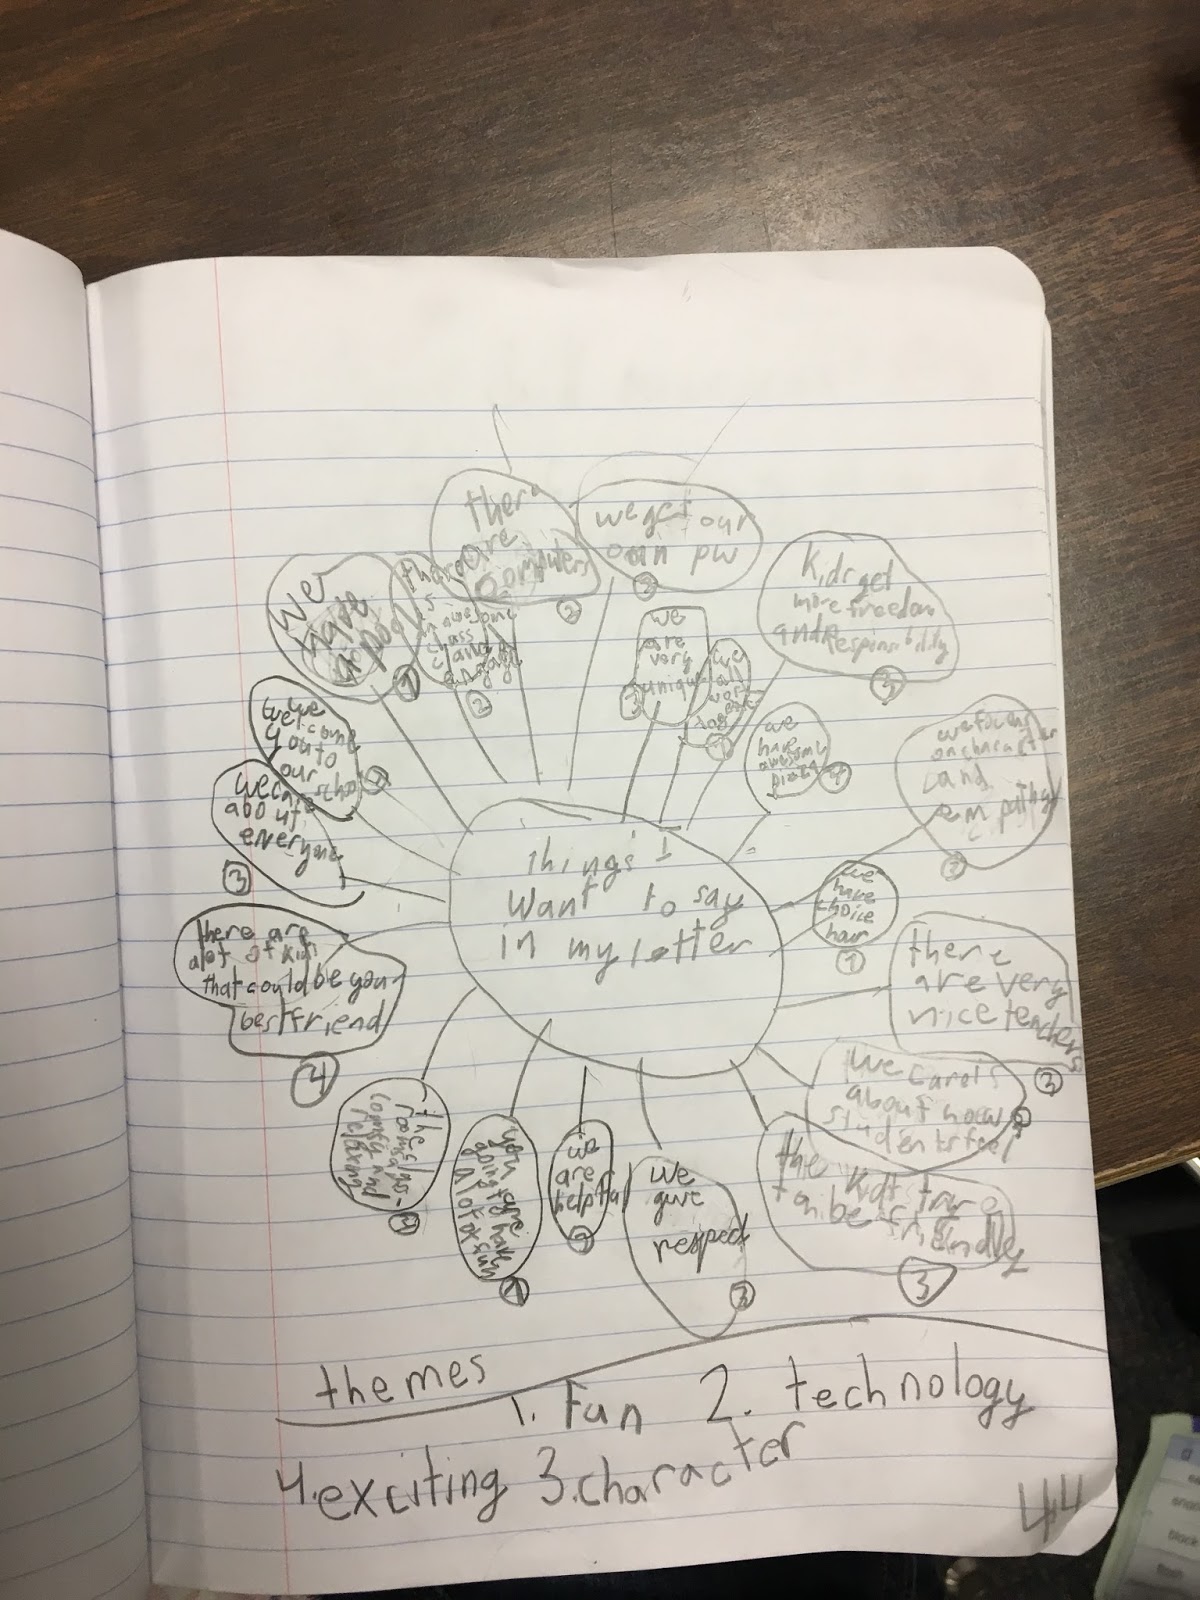 there
are
computers
2
we get our
own pw
2
we
have
a pool
1
there
is
awesome
class
2
we
are
very
unique
3
we
all
work
1
Kids get
more freedom
and Responsibility
3
we
have
awesome
4
we focus
on character
and
empathy
we
welcome
you to
our
school
we care
about
everyone
3
we
have
choice
hour
1
there are
alot of kids
that could be your
best friend
4
things I
want to say
in my letter
there
are very
nice teachers
3
about how
students feel
the
rooms
comfy and
relaxing
you are
going to have
a lot of fun
1
we
are
helpful
we
give
respect
3
the kids
3
themes
1. Fun 2. technology
4. exciting 3. character
44